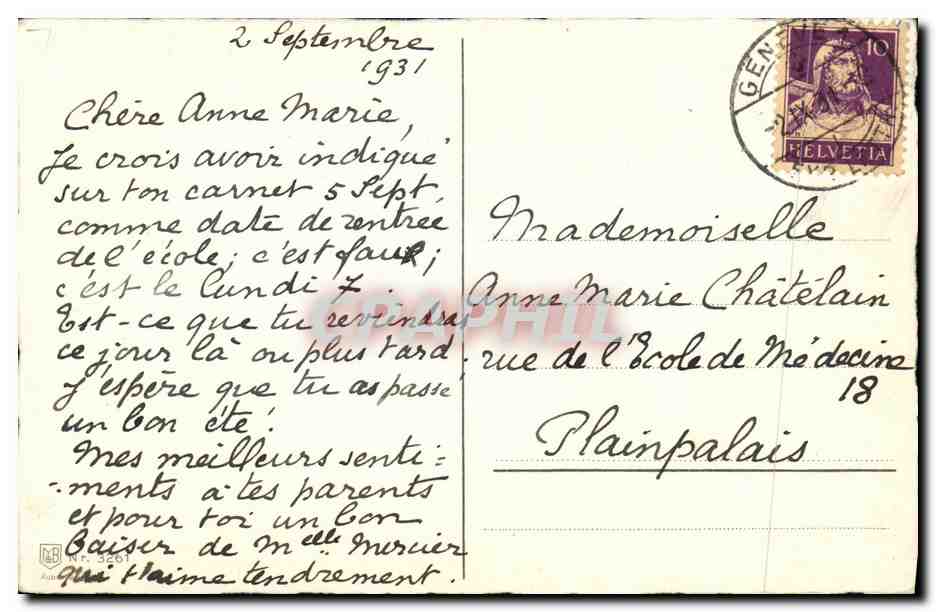 2 Septembre
1931
Chère Anne Marie,
Je crois avoir indiqué
sur ton carnet 5 Sept.
comme date de rentrée
de l'école; c'est faux;
c'est le lundi 7.
Est-ce que tu reviendras
ce jour là ou plus tard.
J'espère que tu as passé
un bon été!
Mes meilleurs senti-
-ments à tes parents
et pour toi un bon
Baiser de Melle Mercier
qui t'aime tendrement.
Nr. 3261
GENÈVE 1
10
HELVETIA
Mademoiselle
Anne Marie Châtelain
rue de l'Ecole de Médecine
18
Plainpalais
CPAPHIL